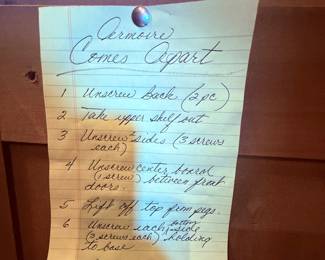 Armoire
Comes Apart
1 Unscrew back (2 pc)
2 Take upper shelf out
3 Unscrew 2 sides (3 screws
each)
4 Unscrew center board
(1 screw) between front
doors.
5 Lift off top from pegs.
6 Unscrew each bottom side
(3 screws each) holding
to base